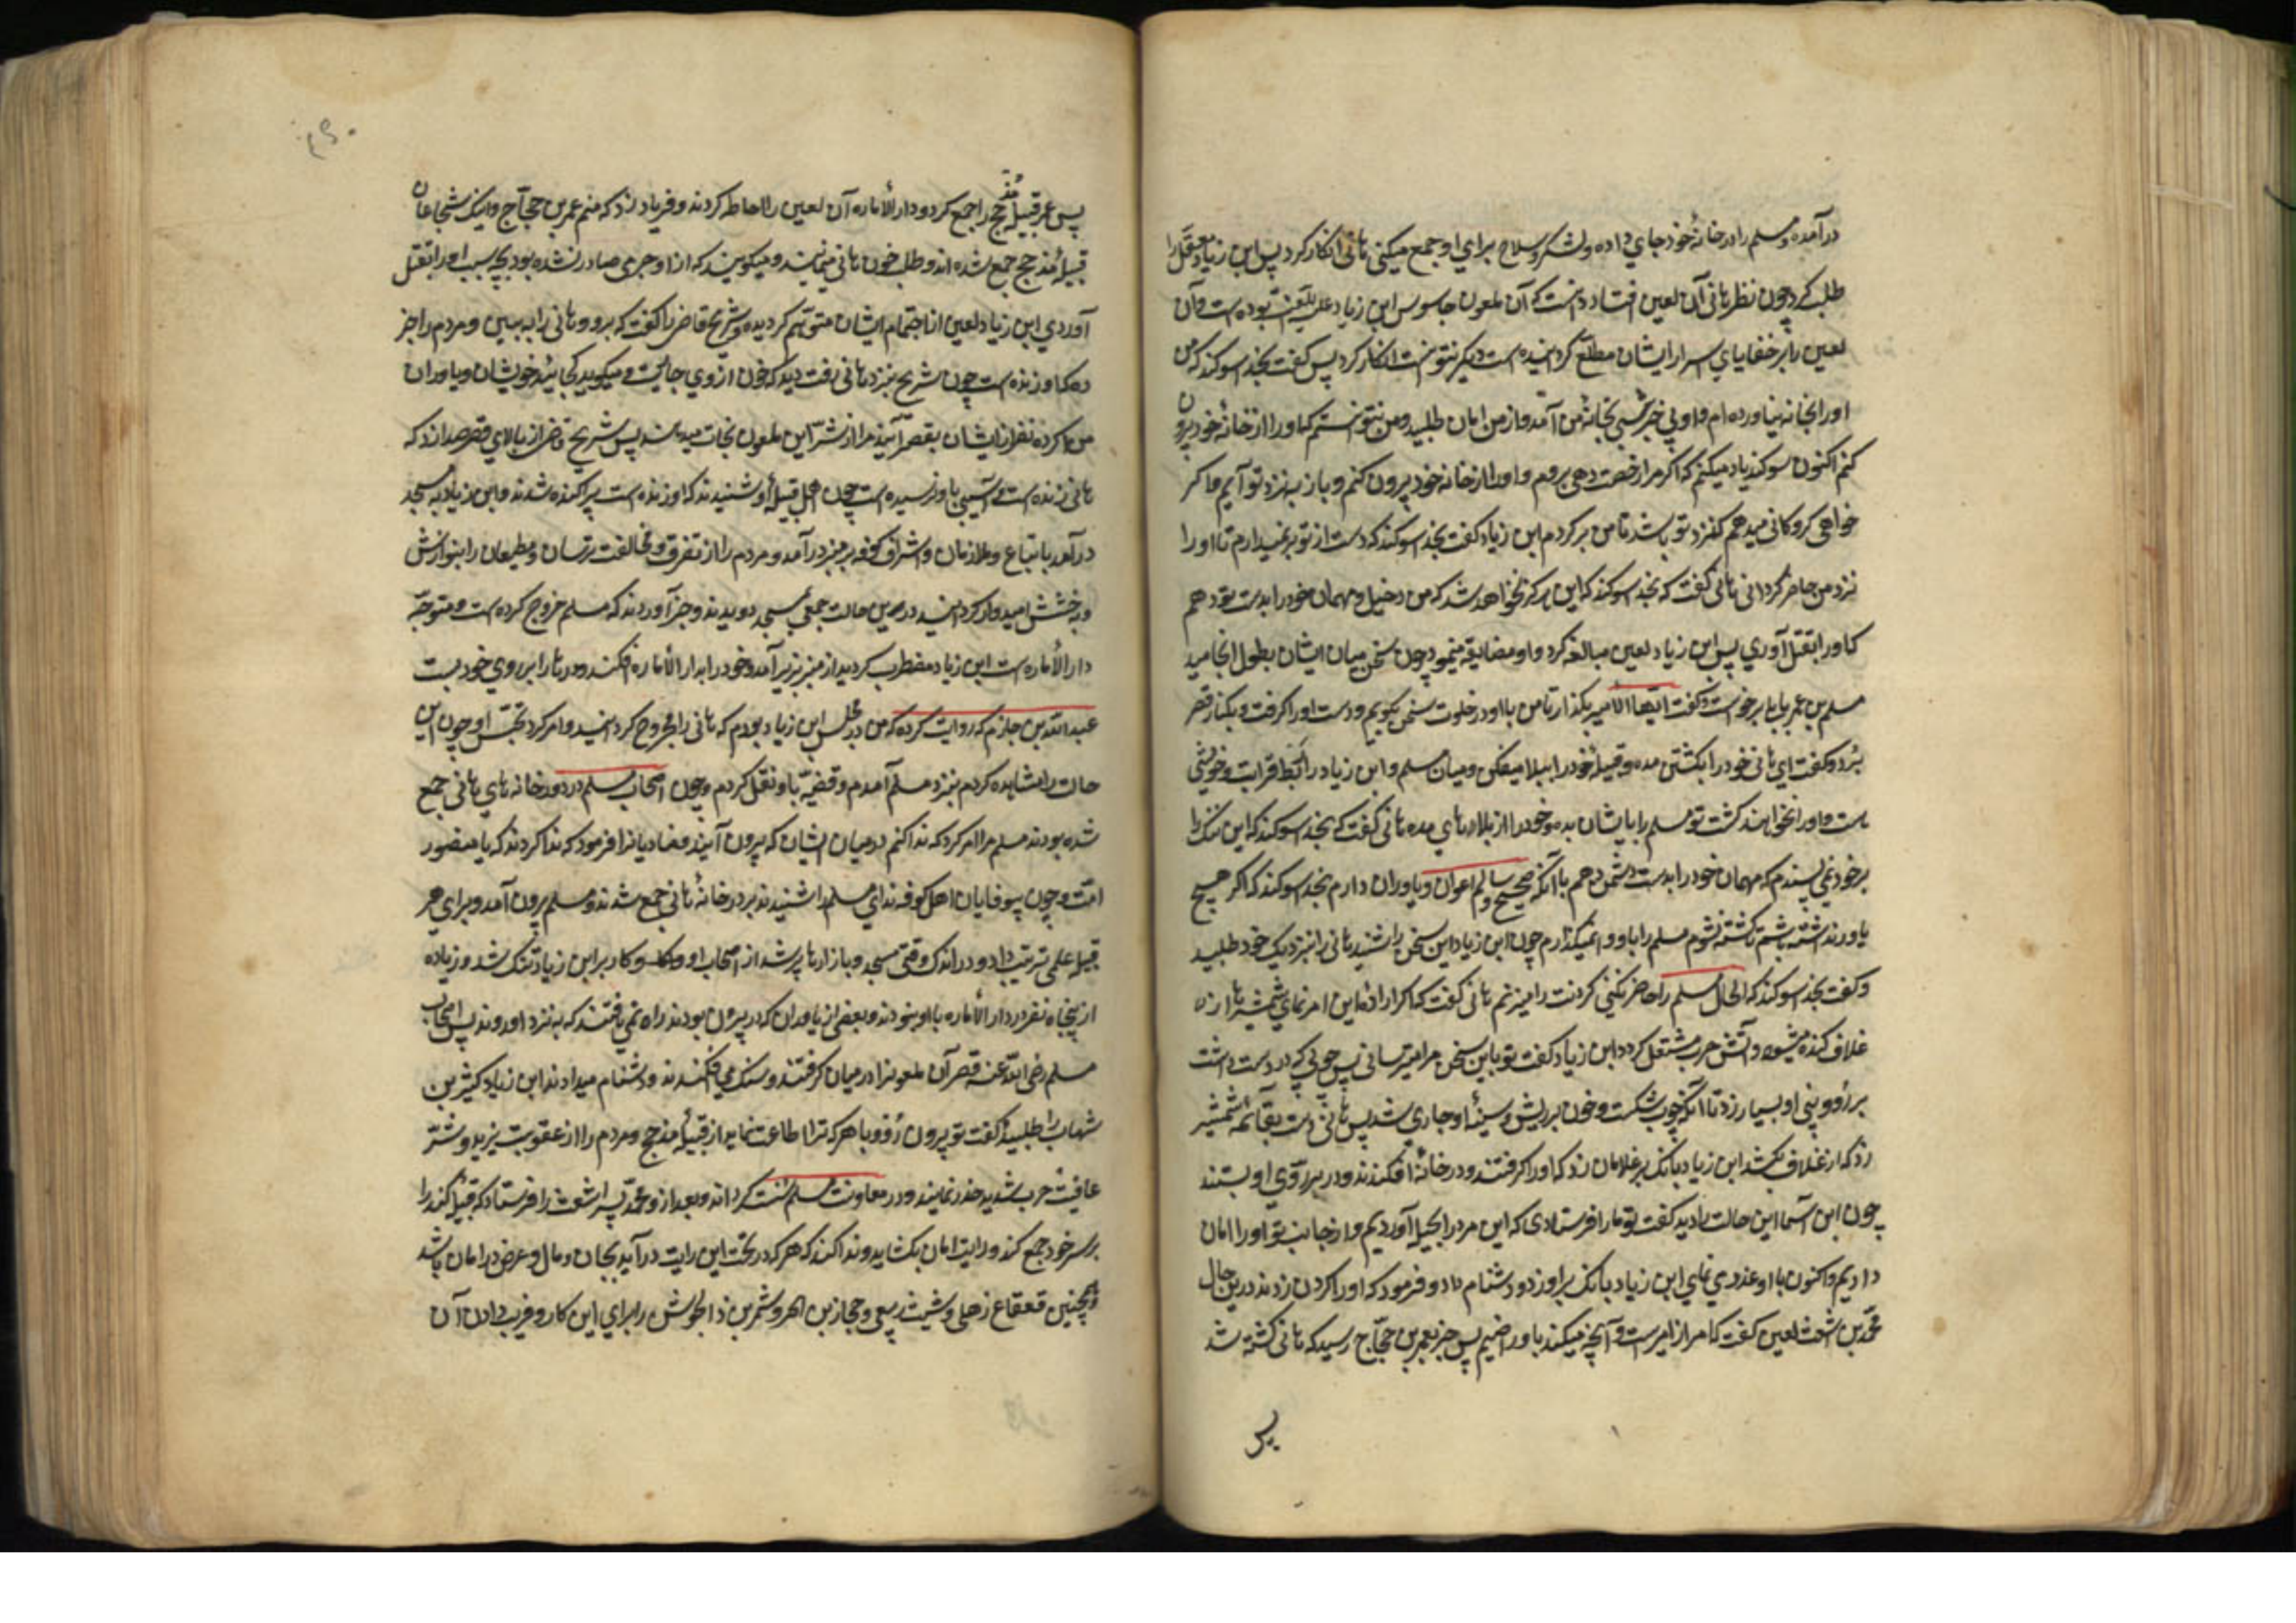 درآمده و مسلم را در خانهٔ خود جای داده و لشکر و سلاح برای او جمع میکنی هانی انکار کرد پس ابن زیاد معقل را
طلب کرد چون نظر هانی بر آن لعین افتاد دانست که آن ملعون جاسوس ابن زیاد علیه اللعنة بوده است و آن
لعین را بر خفایای اسرار ایشان مطلع گردانیده است دیگر نتوانست انکار کرد پس گفت بخدا سوگند که من
او را بخانه نیاورده‌ام و او بی خبر شبی بخانهٔ من آمد و از من امان طلبید و من نتوانستم که او را از خانهٔ خود بیرون
کنم اکنون سوگند یاد میکنم که اگر مرا رخصت دهی بروم و او را از خانه خود بیرون کنم و باز به نزد تو آیم و اگر
خواهی گروکانی میدهم که نزد تو باشد تا من برگردم ابن زیاد گفت بخدا سوگند که دست از تو برنمیدارم تا او را
نزد من حاضر گردانی هانی گفت که بخدا سوگند که این هرگز نخواهد شد که من دخیل و مهمان خود را بدست تو دهم
که او را بقتل آوری پس ابن زیاد لعین مبالغه کرد و او مضایقه مینمود چون سخن میان ایشان بطول انجامید
مسلم بن عمر باهلی برخاست و گفت ایها الامیر بگذار تا من با او در خلوت سخن بگویم و دست او را گرفت و بکنار قصر
برد و گفت ای هانی خود را بکشتن مده و قبیلهٔ خود را ببلا میفکن و میان مسلم و ابن زیاد رابطهٔ قرابت و خویشی
است و او را نخواهند کشت تو مسلم را بایشان بده و خود را از بلا رهایی مده هانی گفت که بخدا سوگند که این ننگ را
بر خود نمی پسندم که مهمان خود را بدست دشمن دهم با آنکه صحیح و سالم و اعوان و یاوران دارم بخدا سوگند که اگر هیچ
یاور نداشته باشم تا کشته نشوم مسلم را باو وا نمیگذارم چون ابن زیاد این سخن را شنید هانی را بنزدیک خود طلبید
و گفت بخدا سوگند که الحال مسلم را حاضر نکنی گردنت را میزنم هانی گفت که اگر اراده این امر نمای شمشیرها از
غلاف کنده میشود و آتش حرب مشتعل گردد ابن زیاد گفت تو باین سخن مرا میترسانی پس چوبی که در دست داشت
بر رو و بینی او بسیار زد تا آنکه چوب شکست و خون بر ریش و سینهٔ او جاری شد پس هانی دست بقائمهٔ شمشیر
زد که از غلاف بکشد ابن زیاد بانک بر غلامان زد که او را گرفتند و در خانهٔ افکندند و در بر روی او بستند
چون ابن اسما این حالت را دید گفت تو ما را فرستادی که این مرد را بحیله آوردیم و از جانب تو او را امان
دادیم و اکنون با او غدر می نمای ابن زیاد بانک بر او زد و دشنام داد و فرمود که او را گردن زدند در این حال
محمد بن اشعث لعین گفت که امر از امیرست و آنچه میکند باو راضیم پس خبر بعمر بن حجاج رسید که هانی کشته شد
پس
پس عمر قبیلهٔ مذحج را جمع کرد و دار الأماره آن لعین را احاطه کردند و فریاد زد که منم عمر بن حجاج و اینک شجاعان
قبیلهٔ مذحج جمع شده اند و طلب خون هانی مینمایند و میگویند که از او جرمی صادر نشده بود بچه سبب او را بقتل
آوردی ابن زیاد لعین از اجتماع ایشان متوهم گردیده و شریح قاضی را گفت که برو و هانی را ببین و مردم را خبر
ده که او زنده است چون شریح بنزد هانی رفت دید که خون از روی او جاریست و میگوید کجایند خویشان و یاوران
من اگر ده نفر از ایشان بقصر آیند مرا از شر این ملعون نجات میدهند پس شریح قاضی از بالای قصر صدا زد که
هانی زنده است و آسیبی باو نرسیده است چون اهل قبیلهٔ او شنیدند که او زنده است پراکنده شدند و ابن زیاد به مسجد
درآمد با اتباع و ملازمان و اشراف کوفه بر منبر درآمد و مردم را از تفرق و مخالفت ترسان و مطیعان را بنوازش
و بخشش امیدوار گردانید در این حالت جمعی بمسجد دویدند و خبر آوردند که مسلم خروج کرده است و متوجه
دار الأماره است ابن زیاد مضطرب گردید از منبر بزیر آمد و خود را بدار الأماره افکند و درها را بر روی خود بست
عبد الله بن حازم که روایت کرده که من در مجلس ابن زیاد بودم که هانی را مجروح گردانید و امر کرد بحبس او چون این
حالت را مشاهده کردم بنزد مسلم آمدم و قضیه باو نقل کردم و چون اصحاب مسلم در دور خانه های هانی جمع
شده بودند مسلم مرا امر کرد که ندا کنم در میان ایشان که بیرون آیند و منادیانرا فرمود که ندا کردند که یا منصور
امت و چون بیوفایان اهل کوفه ندای مسلم را شنیدند بر در خانهٔ هانی جمع شدند و مسلم بیرون آمد و برای هر
قبیلهٔ علمی ترتیب داد و در اندک وقتی مسجد و بازارها پر شد از اصحاب او و کار بر ابن زیاد تنگ شد و زیاده
از پنجاه نفر در دار الأماره با او نبودند و بعضی از یاوران که در بیرون بودند راه نمی یافتند که به نزد او روند پس اصحاب
مسلم رضی الله عنه قصر آن ملعونرا در میان گرفتند و سنگ می افکندند و دشنام میدادند ابن زیاد کثیر بن
شهاب را طلبید و گفت تو بیرون رو و با هر که ترا اطاعت نماید از قبیلهٔ مذحج و مردم را از عقوبت یزید و شر
عاقبت حرب شدید حذر نمایند و در معاونت مسلم سست گردانند و بعد از او محمد پسر اشعث را فرستاد که قبیلهٔ کنده را
بر سر خود جمع کند و رایت امان بگشاید و ندا کند که هر که در تحت این رایت درآید بجان و مال و عرض در امان باشد
و همچنین قعقاع ذهلی و شبث ربعی و حجاز بن ابهر و شمر بن ذا الجوشن را برای این کار و فریب دادن آن